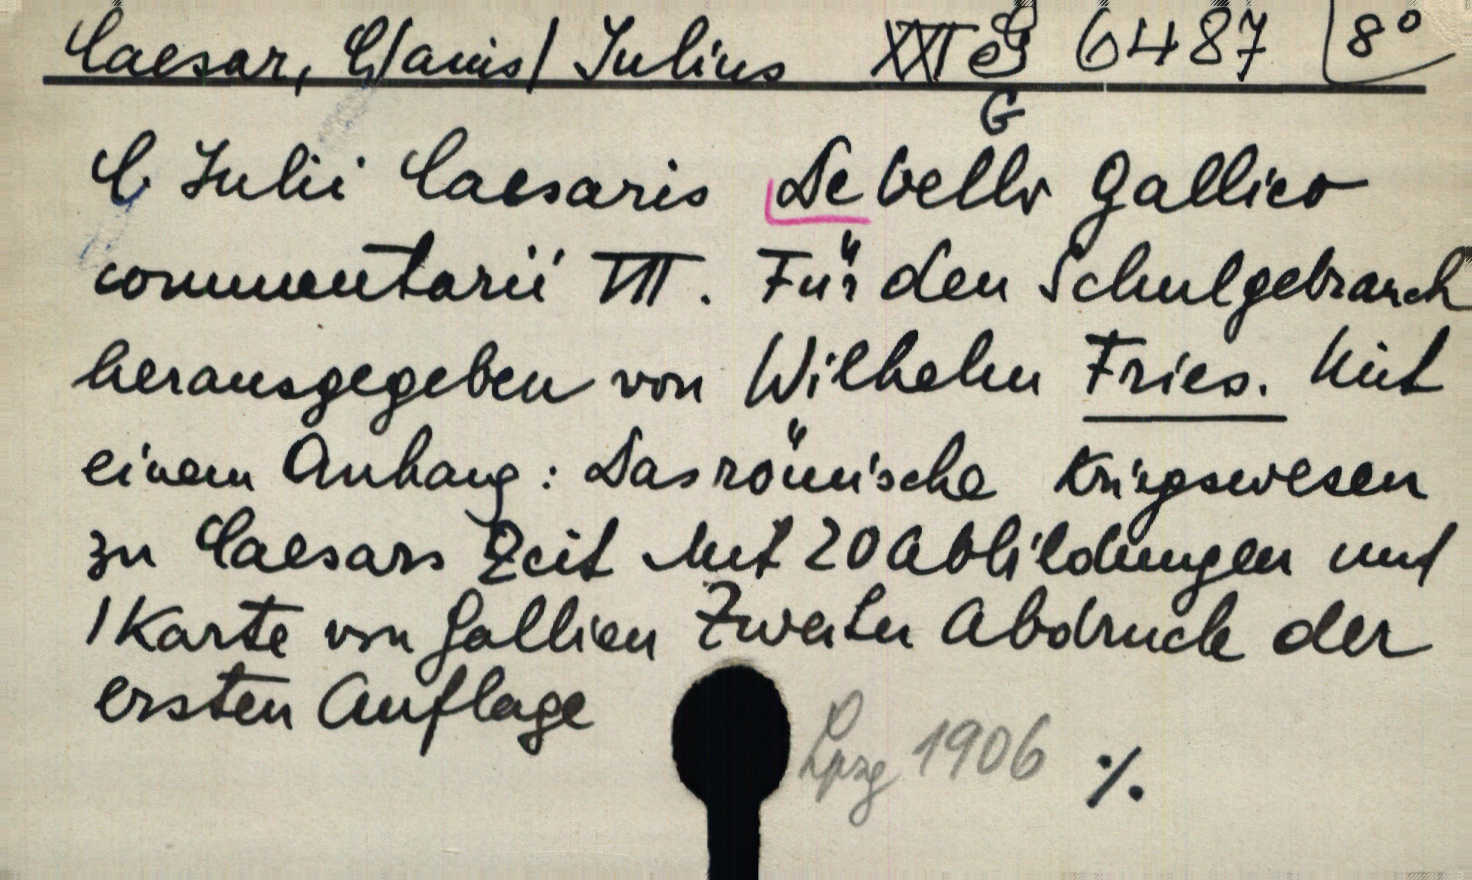 Caesar, C/aius/ Julius XXI G 6487 8°
G
C Julii Caesaris De bello Gallico
commentarii VII. Für den Schulgebrauch
herausgegeben von Wilhelm Fries. Mit
einem Anhang: Das römische Kriegswesen
zu Caesars Zeit Mit 20 Abbildungen und
1 Karte von Gallien Zweiter Abdruck der
ersten Auflage
Lpzg 1906 ./.